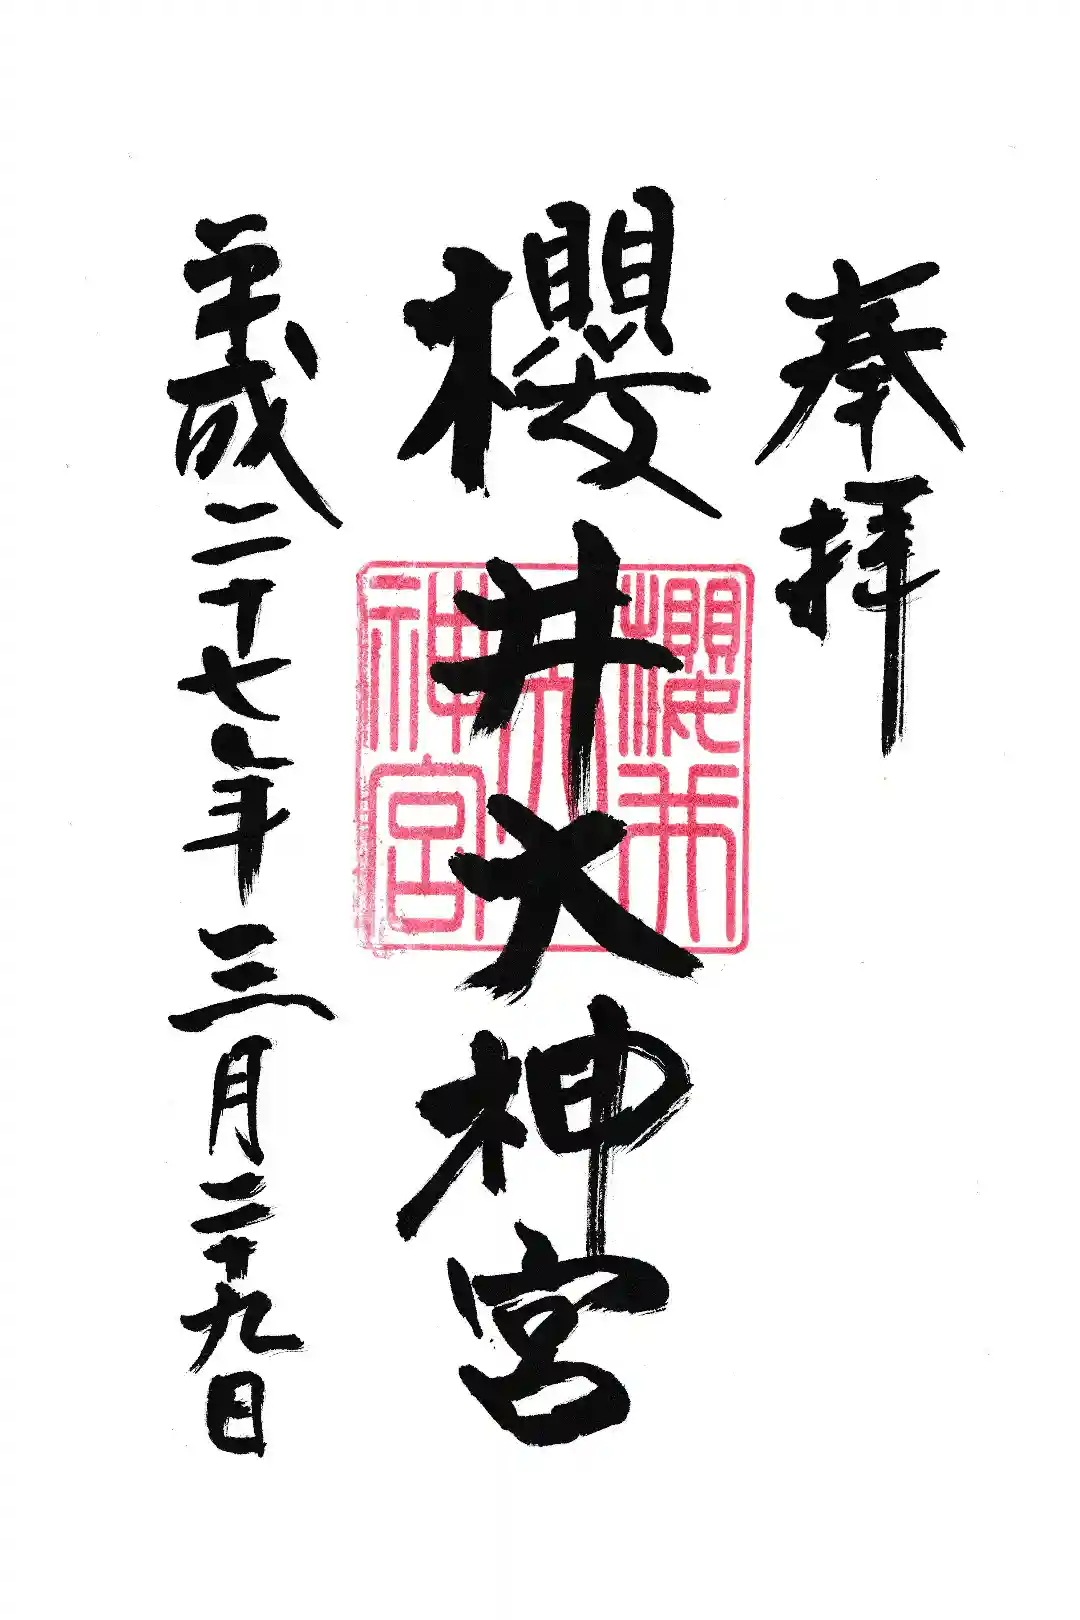 奉拝
櫻井大神宮
櫻井
大
神宮
平成二十七年三月二十九日